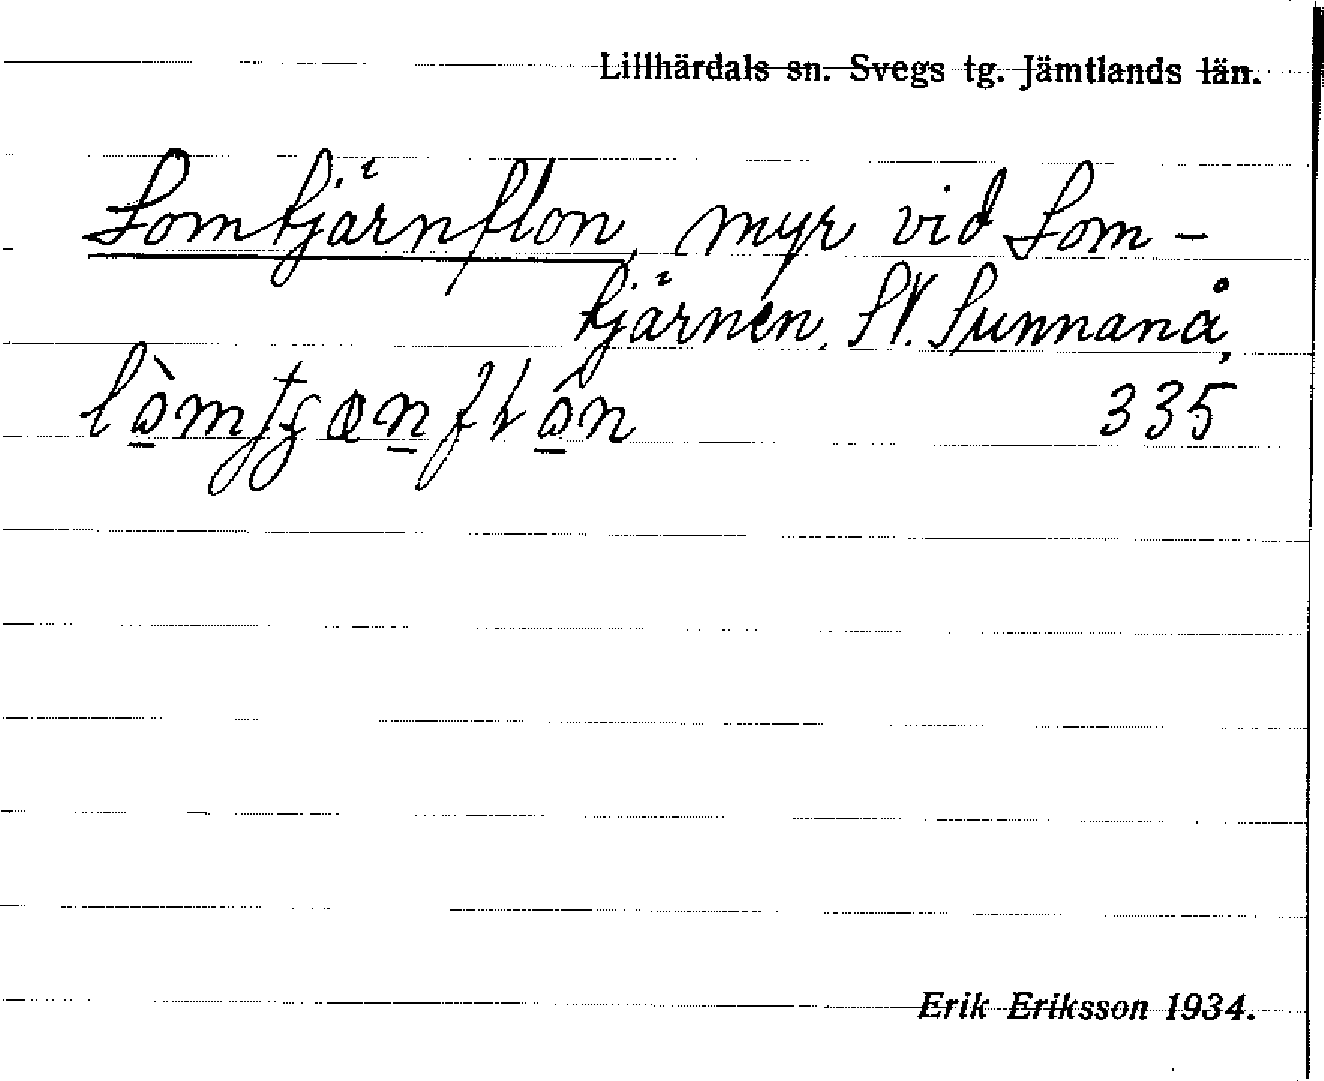 Lillhärdals sn. Svegs tg. Jämtlands län.
Lomtjärnflon, myr vid Lom-
tjärnen, SV. Sunnanå,
335
Erik Eriksson 1934.